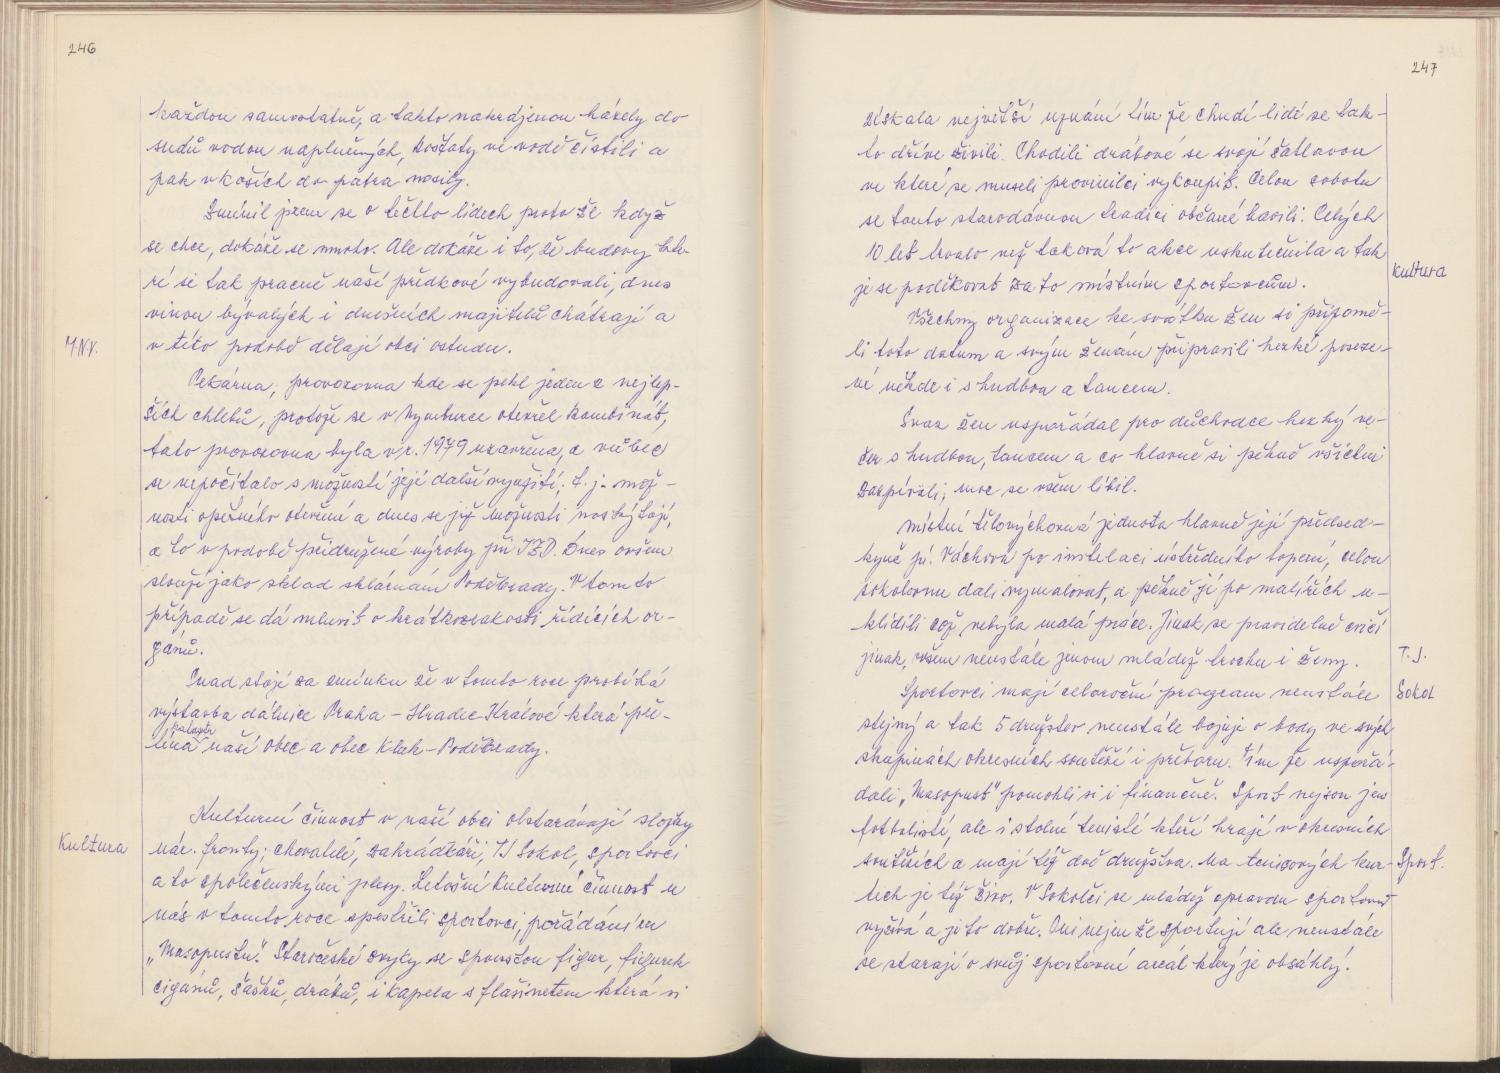 246
každou samostatně, a takto nahrdjenou házely do
sudů vodou naplněných, košťaty ve vodě čistili a
pak v koších do patra nosily.
Zmínil jsem se o těchto lidech proto že když
se chce, dokáže se mnoho. Ale dokáže i to, že budovy kte-
ré si tak pracně naší předkové vybudovali, dnes
vinou bývalých i dnešních majitelů chátrají a
M.N.V.
v této podobě dělají obci ostudu.
Pekárna, provozovna kde se pekl jeden z nejlep-
ších chlebů, protože se v Nymburce otevřel kombinát,
tato provozovna byla v r. 1979 uzavřena, a vůbec
se nepočítalo s možností její další využití, t. j. mož-
nosti opětného otevření a dnes se již možnosti naskýtají,
a to v podobě přidružené výroby při JZD. Dnes ovšem
slouží jako sklad sklárnám Poděbrady. V tomto
případě se dá mluvit o krátkozrakosti řídících or-
gánů.
Snad stojí za zmínku že v tomto roce probíhá
výstavba dálnice Praha – Hradec Králové která pře-
katastr
líná naší obec a obec Kluk-Poděbrady.
Kulturní činnost v naší obci obstarávají složky
Kultura
nár. fronty; chovatelé, zahrádkáři, TJ Sokol, sportovci
a to společenskými plesy. Letošní kulturní činnost u
nás v tomto roce zpestřili sportovci, pořádáním
„Masopustu". Staročeské zvyky se spoustou figur, figurek
cigánů, šašků, drábů, i kapela s flašinetem která si
247
získala největší uznání tím že chudí lidé se tak-
to dříve živili. Chodili drábové se svojí šatlavou
ve které se museli provinilci vykoupit. Celou sobotu
se touto starodávnou tradicí občané bavili. Celých
10 let trvalo než taková to akce uskutečnila a tak
kultura
je se poděkovat za to místním sportovcům.
Všechny organizace ke svátku žen si připomě-
li toto datum a svým ženám připravili hezké poseze-
ní někde i s hudbou a tancem.
Svaz žen uspořádal pro důchodce hezký ve-
čer s hudbou, tancem a co hlavně si pěkně všichni
zazpívali, moc se všem líbil.
Místní tělovýchovná jednota hlavně její předsed-
kyně pí. Váchová po instalaci ústředního topení, celou
sokolovnu dali vymalovat, a pěkně jí po malířích u-
klidili což nebyla malá práce. Jinak se pravidelně cvičí
jinak, všem neustále jenom mládež trochu i ženy.
T. J.
Sportovci mají celoroční program neustále
Sokol
stejný a tak 5 družstev neustále bojuje o body ve svých
skupinách okresních soutěží i přeboru. Tím že uspořá-
dali „Masopust" pomohli si i finančně. Sport nejsou jen
fotbalisté, ale i stolní tenisté kteří hrají v okresních
soutěžích a mají též dvě družstva. Na tenisových kur-
Sport.
tech je též živo. V Sokolči se mládež opravdu sportovně
vyžívá a je to dobře. Oni nejen že sportují ale neustále
se starají o svůj sportovní areál který je obsáhlý.